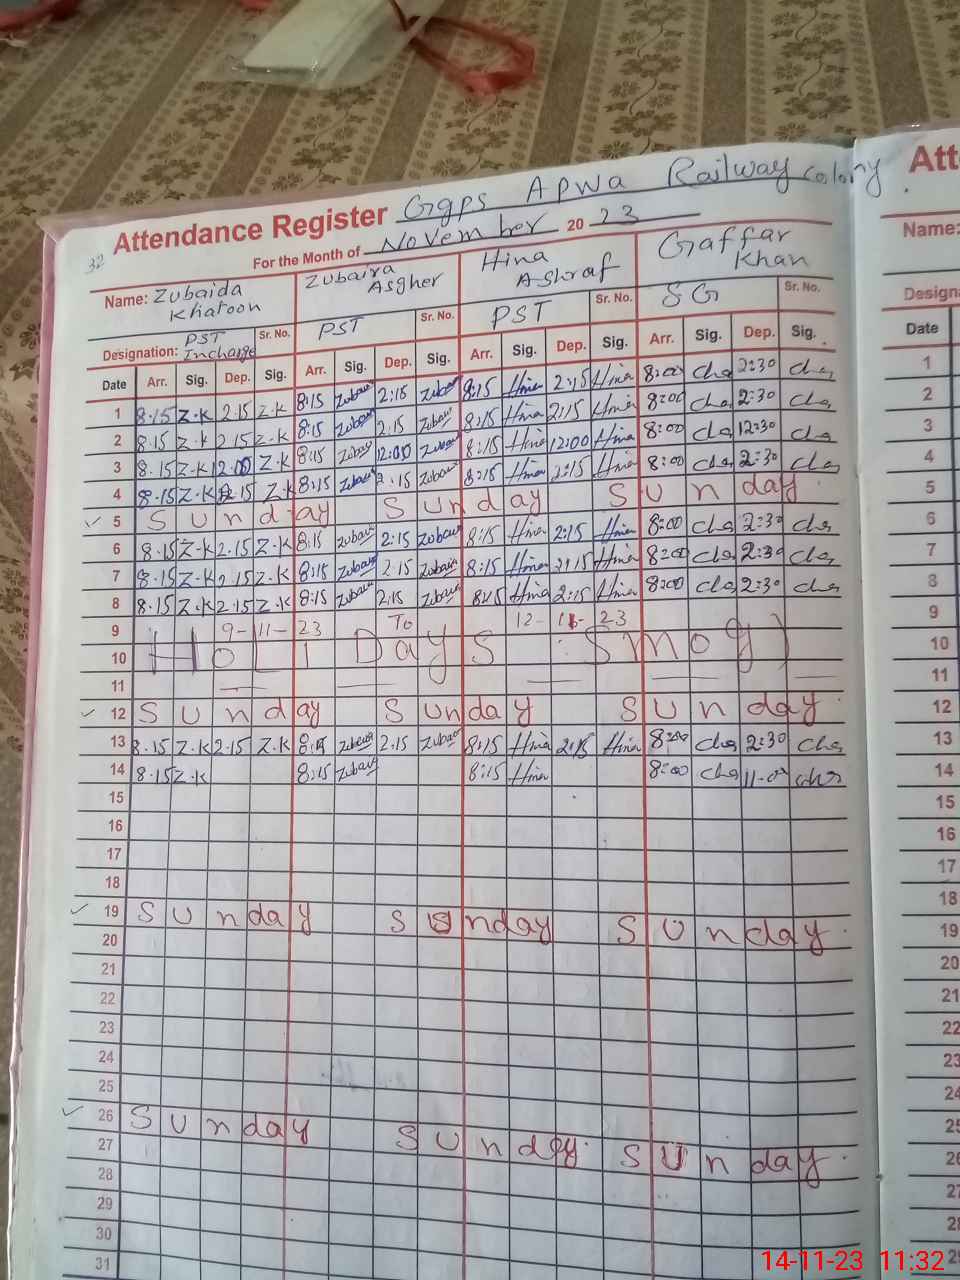 Attendance Register Ggps Apwa Railway colony
For the Month of November 20 23
32
Name: Zubaida Khatoon Zubaira Asgher Hina Ashraf Gaffar Khan
Designation: PST Incharge Sr. No. PST Sr. No. PST Sr. No. SG Sr. No.
Date Arr. Sig. Dep. Sig. Arr. Sig. Dep. Sig. Arr. Sig. Dep. Sig. Arr. Sig. Dep. Sig.
1 8.15 Z.K 2.15 Z.K 8:15 Zubair 2:15 Zubair 8:15 Hina 2:15 Hina 8:00 2:30
2 8.15 Z.K 2.15 Z.K 8:15 Zubair 2.15 Zubair 8:15 Hina 2:15 Hina 8:00 2:30
3 8.15 Z.K 12.00 Z.K 8:15 Zubair 12:00 Zubair 8:15 Hina 12:00 Hina 8:00 12:30
4 8.15 Z.K 2.15 Z.K 8:15 Zubair 2.15 Zubair 8:15 Hina 2:15 Hina 8:00 2:30
5 Sunday Sunday Sunday
6 8.15 Z.K 2.15 Z.K 8:15 Zubair 2:15 Zubair 8:15 Hina 2:15 Hina 8:00 2:30
7 8.15 Z.K 2.15 Z.K 8:15 Zubair 2.15 Zubair 8:15 Hina 2:15 Hina 8:00 2:30
8 8.15 Z.K 2.15 Z.K 8:15 Zubair 2.15 Zubair 8:15 Hina 2:15 Hina 8:00 2:30
9 9-11-23 To 12-11-23
10 HoLiDays : Smog)
11
12 Sunday Sunday Sunday
13 8.15 Z.K 2.15 Z.K 8:15 Zubair 2.15 Zubair 8:15 Hina 2:15 Hina 8:00 2:30
14 8.15 Z.K 8:15 Zubair 8:15 Hina 8:00 11-00
15
16
17
18
19 Sunday Sunday Sunday
20
21
22
23
24
25
26 Sunday Sunday Sunday
27
28
29
30
31
Att
Name:
Design
Date
1
2
3
4
5
6
7
8
9
10
11
12
13
14
15
16
17
18
19
20
21
22
23
24
25
26
27
14-11-23 11:32